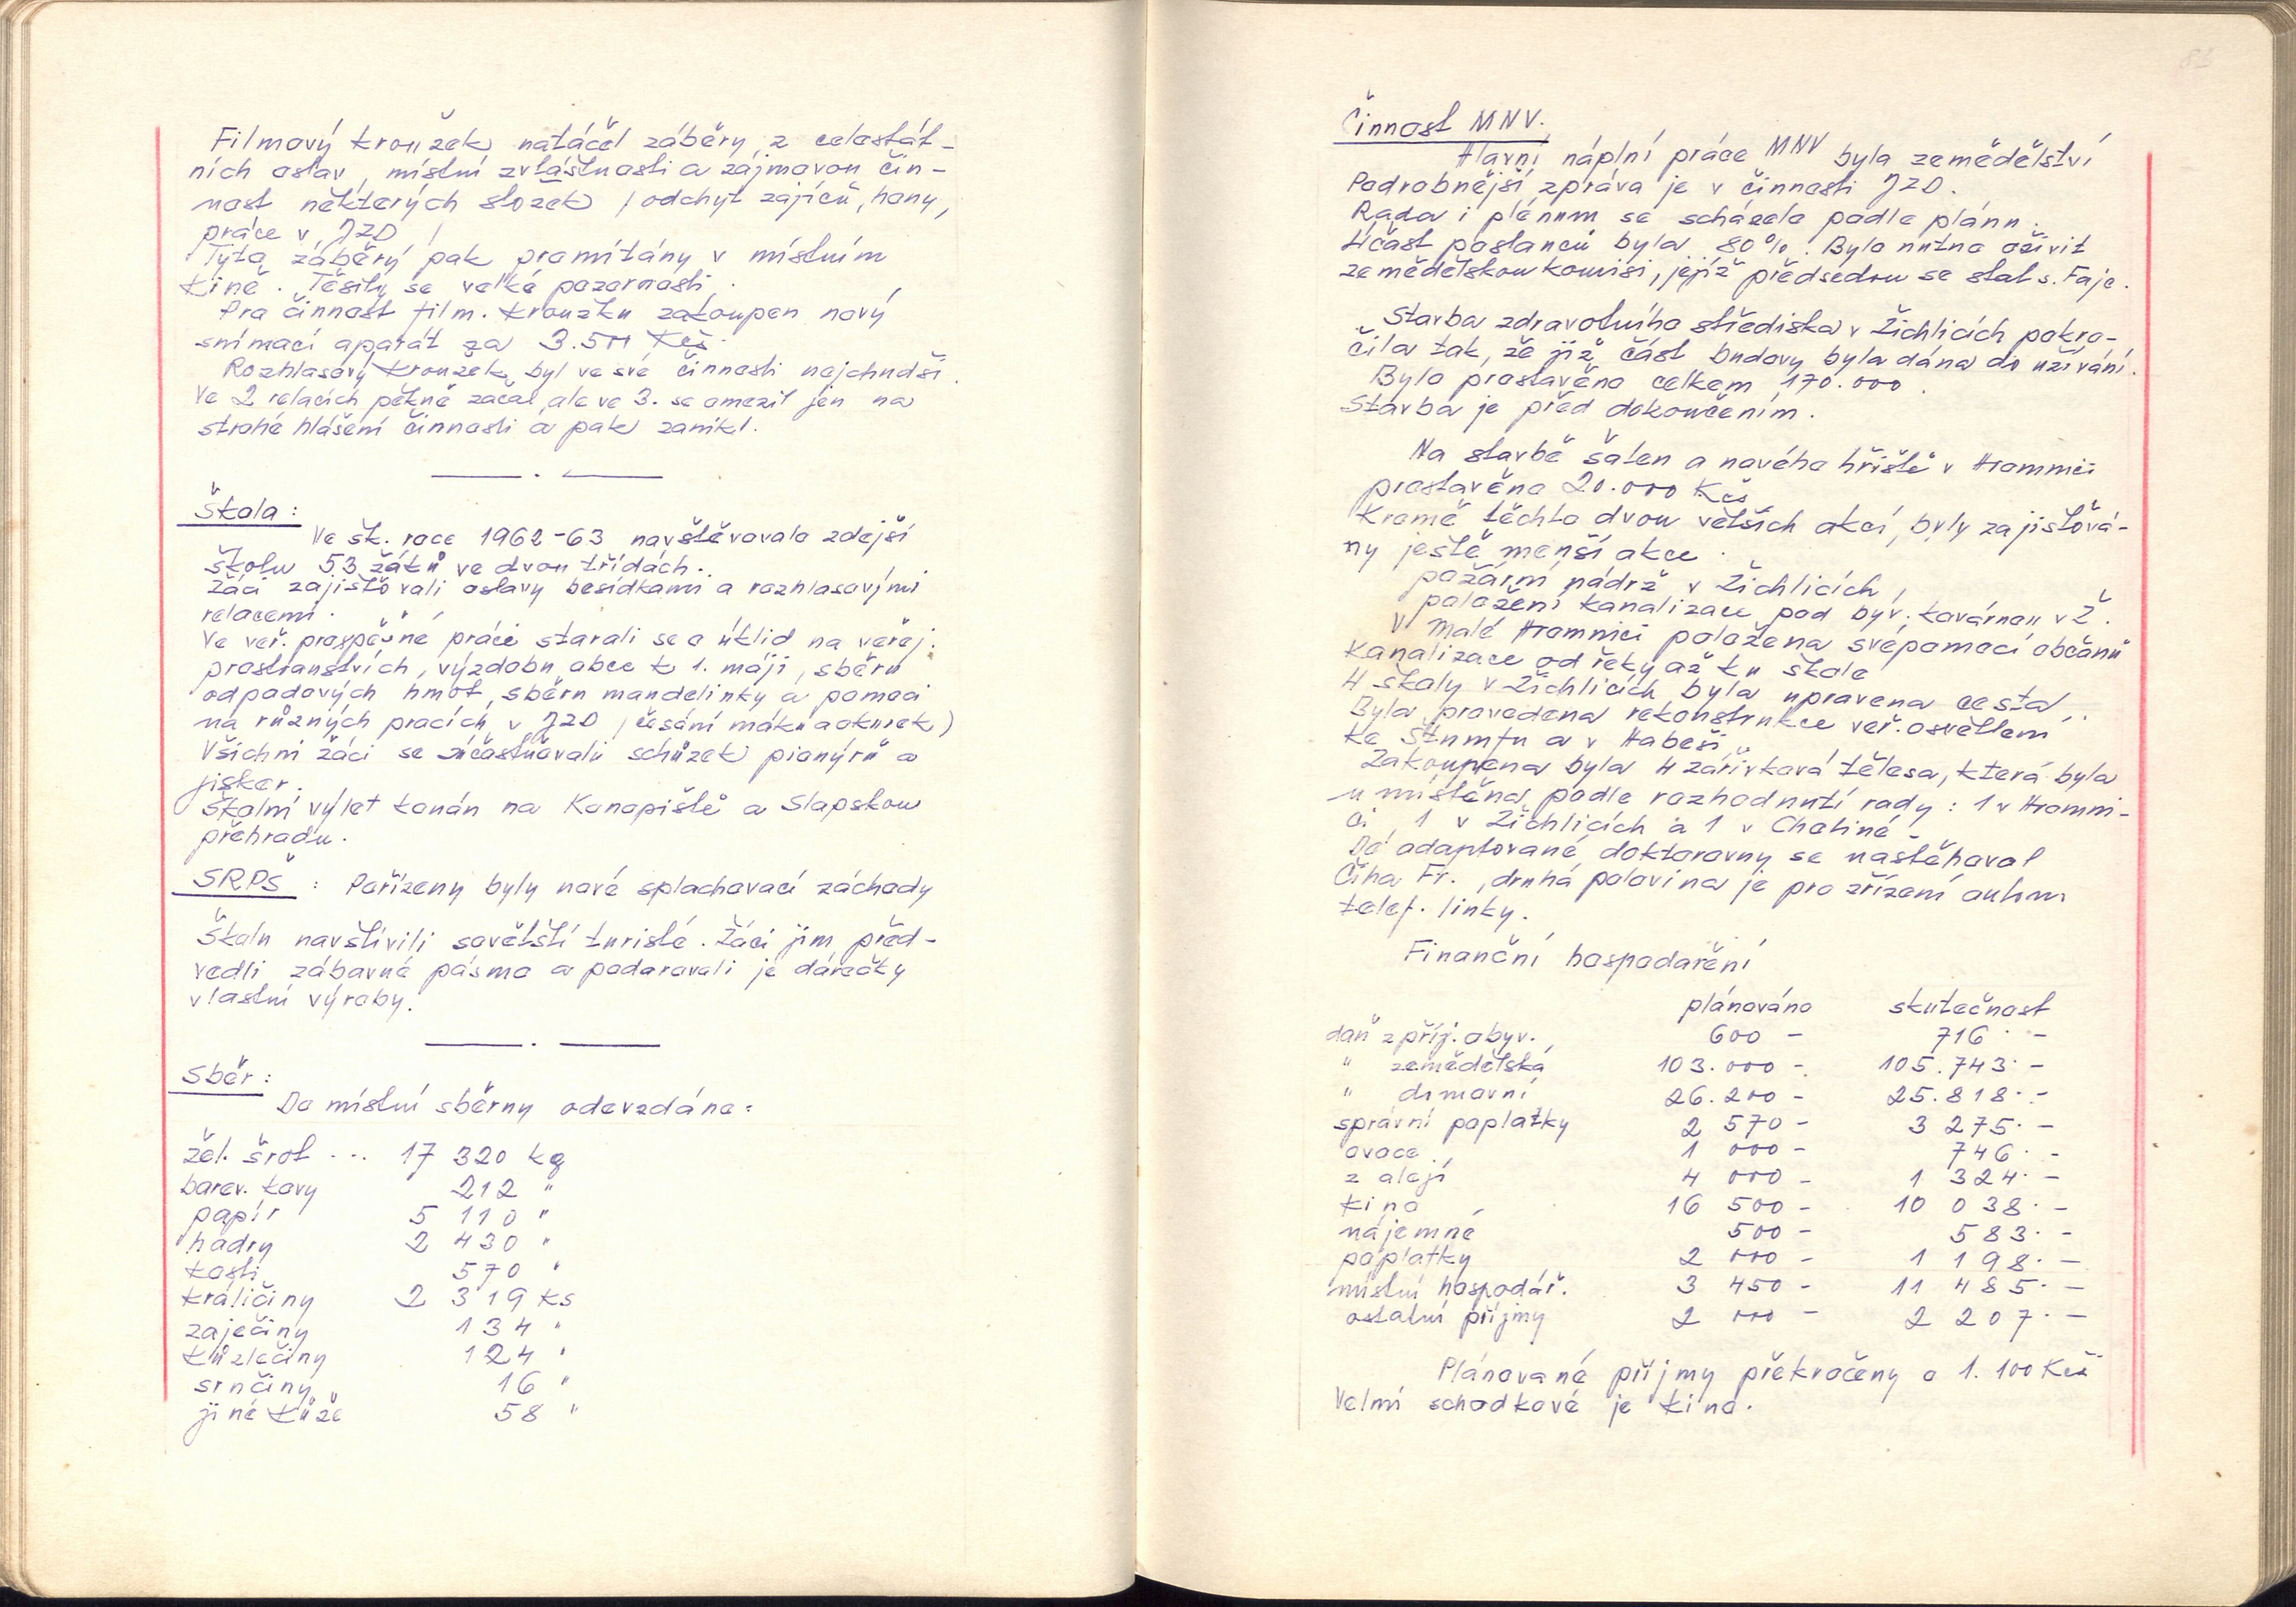 Filmový kroužek natáčel záběry z celostát-
ních oslav, místní zvláštnosti a zájmovou čin-
nost některých složek / odchyt zajíců, hony,
práce v JZD /
Tyto záběry pak promítány v místním
kině. Těšily se velké pozornosti.
Pro činnost film. kroužku zakoupen nový
snímací aparát za 3.500 Kčs.
Rozhlasový kroužek byl ve své činnosti nejchudší.
Ve 2 relacích pěkně začal, ale ve 3. se omezil jen na
strohé hlášení činnosti a pak zanikl.
Škola:
Ve šk. roce 1962-63 navštěvovalo zdejší
školu 53 žáků ve dvou třídách.
Žáci zajišťovali oslavy besídkami a rozhlasovými
relacemi.
Ve veř. prospěšné práci starali se o úklid na veřej.
prostranstvích, výzdobu obce k 1. máji, sběru
odpadových hmot, sběru mandelinky a pomoci
na různých pracích v JZD / česání máku a okurek)
Všichni žáci se zúčastňovali schůzek pionýrů a
jisker.
Školní výlet konán na Konopiště a Slapskou
přehradu.
SRPŠ : Pořízeny byly nové splachovací záchody
Školu navštívili sovětští turisté. Žáci jim před-
vedli zábavné pásmo a podarovali je dárečky
vlastní výroby.
Sběr:
Do místní sběrny odevzdáno:
žel. šrot ... 17 320 kg
barev. kovy 212 "
papír 5 110 "
hadry 2 430 "
kosti 570 "
králičiny 2 319 ks
zaječiny 134 "
kůzlečiny 124 "
srnčiny 16 "
jiné kůže 58 "
81
Činnost MNV.
Hlavní náplní práce MNV byla zemědělství
Podrobnější zpráva je v činnosti JZD.
Rada i plénum se scházela podle plánu.
Účast poslanců byla 80%. Bylo nutno oživit
zemědělskou komisi, jejíž předsedou se stal s. Faje.
Stavba zdravotního střediska v Žichlicích pokro-
čila tak, že již část budovy byla dána do užívání.
Bylo prostavěno celkem 170.000.
Stavba je před dokončením.
Na stavbě šaten a nového hřiště v Hromnici
prostavěno 20.000 Kčs
Kromě těchto dvou větších akcí, byly zajišťová-
ny ještě menší akce.
požární nádrž v Žichlicích,
položení kanalizace pod býv. kovárnou v Ž.
V Malé Hromnici položena svépomocí občanů
kanalizace od řeky až ku škole
U školy v Žichlicích byla upravena cesta.
Byla provedena rekonstrukce veř. osvětlem
ke Štumfu a v Habeši.
Zakoupena byla 4 zářivková tělesa, která byla
umístěna podle rozhodnutí rady: 1 v Hromni-
ci, 1 v Žichlicích a 1 v Chotiné
Do adaptované doktorovny se nastěhoval
Číha Fr., druhá polovina je pro zřízení autom
telef. linky.
Finanční hospodaření
plánováno skutečnost
daň z příj. obyv. 600 - 716 -
" zemědělská 103.000 - 105.743 -
" domovní 26.200 - 25.818 -
správní poplatky 2 570 - 3 275 -
ovoce 1 000 - 746 -
z alejí 4 000 - 1 324 -
kino 16 500 - 10 038 -
nájemné 500 - 583 -
poplatky 2 000 - 1 198 -
místní hospodář. 3 450 - 11 485 -
ostatní příjmy 2 000 - 2 207 -
Plánované příjmy překročeny o 1.100 Kčs
Velmi schodkové je kino.